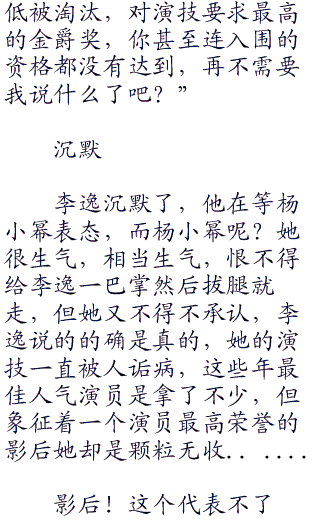 低被淘汰，对演技要求最高
的金爵奖，你甚至连入围的
资格都没有达到，再不需要
我说什么了吧？”
沉默
李逸沉默了，他在等杨
小幂表态，而杨小幂呢？她
很生气，相当生气，恨不得
给李逸一巴掌然后拔腿就
走，但她又不得不承认，李
逸说的的确是真的，她的演
技一直被人诟病，这些年最
佳人气演员是拿了不少，但
象征着一个演员最高荣誉的
影后她却是颗粒无收．．．．．．
影后！这个代表不了